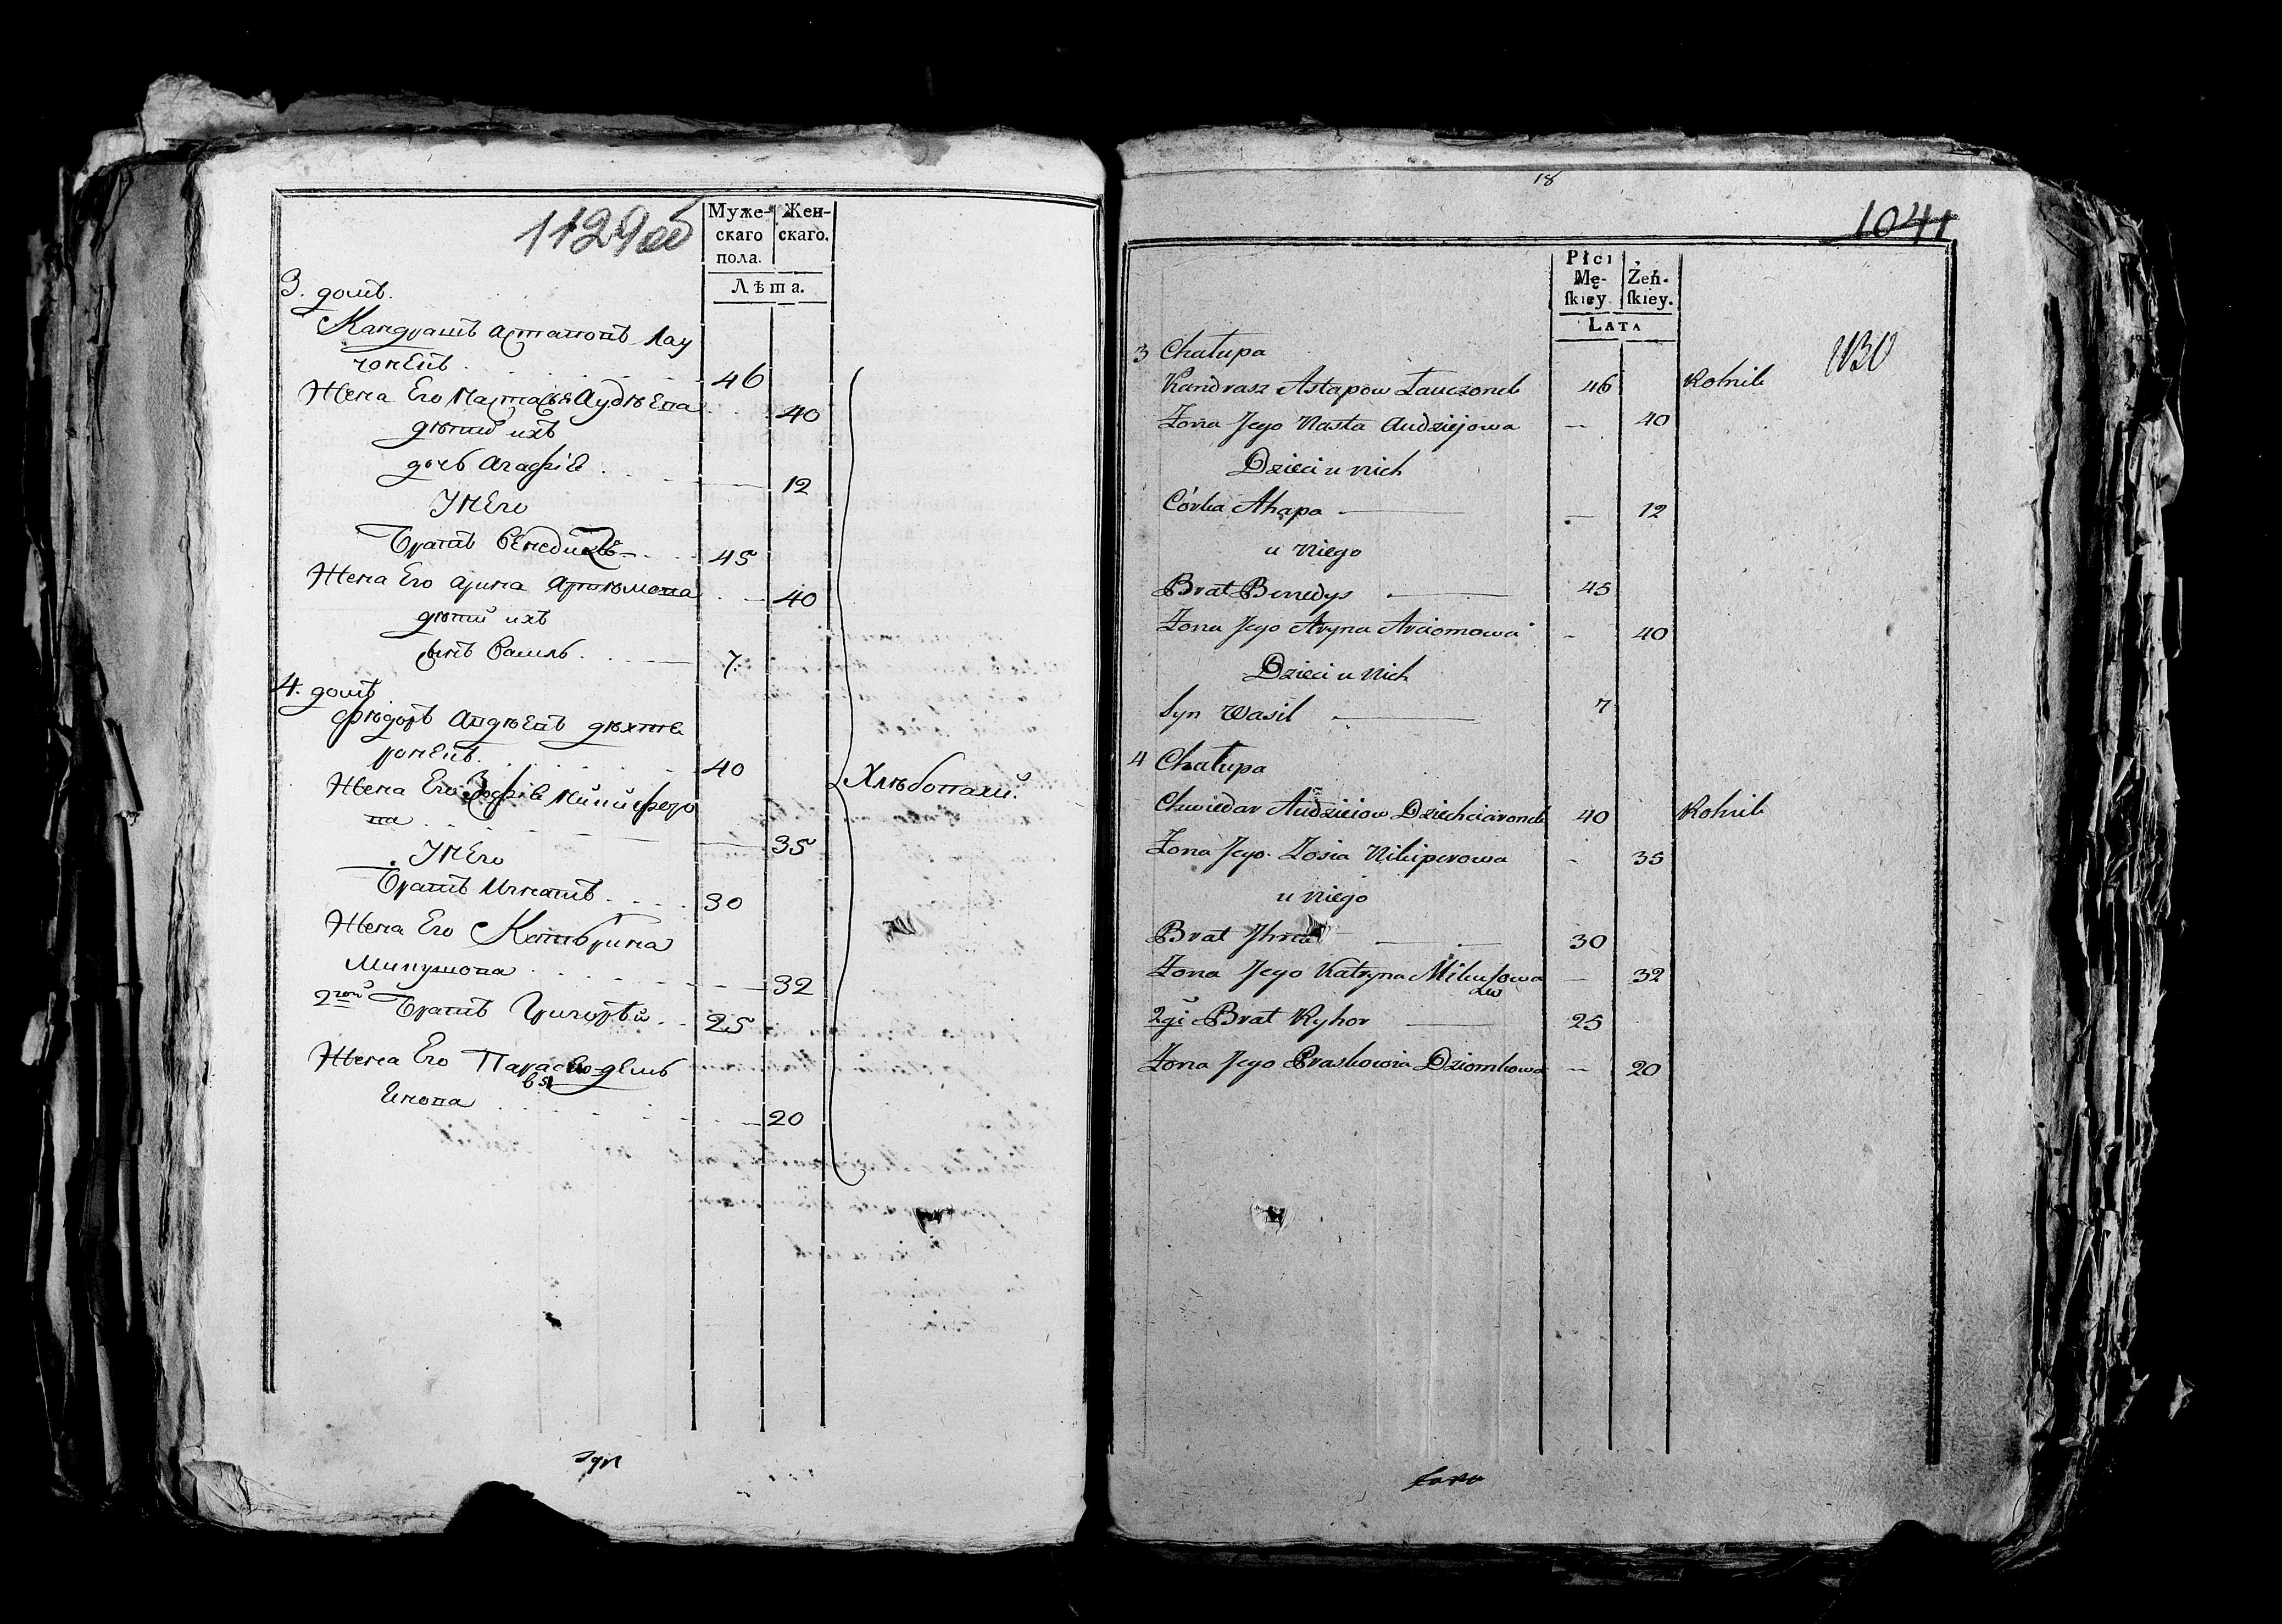 1129об
Муже-
скаго
пола.
Жен-
скаго.
Лѣта.
3. домъ.
Кандрашъ Астаповъ Лау
чонекъ 46
Жена Его Настасья Аудѣева 40
дѣтей ихъ
дочь Агафія 12
У Него
Братъ Венедихтъ 45
Жена Его Арина Артѣмова 40
дѣтей ихъ
сынъ Василь 7.
4. домъ
Ѳѣдоръ Андѣевъ дѣхтя
ронекъ. 40
Жена Его Зофія Никифоро
ва 35
У Него
Братъ Игнатъ 30
Жена Его Катырина
Микушова 32
2гой Братъ Григорѣй 25
Жена Его Парасковья Дем
енова 20
Хлѣбопахи.
18
1041
1130
Płci
Mę-
ſkiey.
Żeń-
ſkiey.
Lata
3 Chałupa
Kandrasz Astapow Łauczonek 46 Rolnik
Żona Jego Nasta Audziejowa — 40
Dzieci u nich
Córka Ahapa — 12
u niego
Brat Benedys 45
Żona Jego Aryna Arciomowa - 40
Dzieci u nich
Syn Wasil 7
4 Chałupa
Chwiedar Audzieiow Dziechciaronek 40 Rolnik
Żona Jego Zosia Nikiperowa - 35
u niego
Brat Ihnat 30
Żona Jego Katryna Mikuſowa — 32
2gi Brat Ryhor 25
Żona Jego Praskowia Dziomkowa — 20